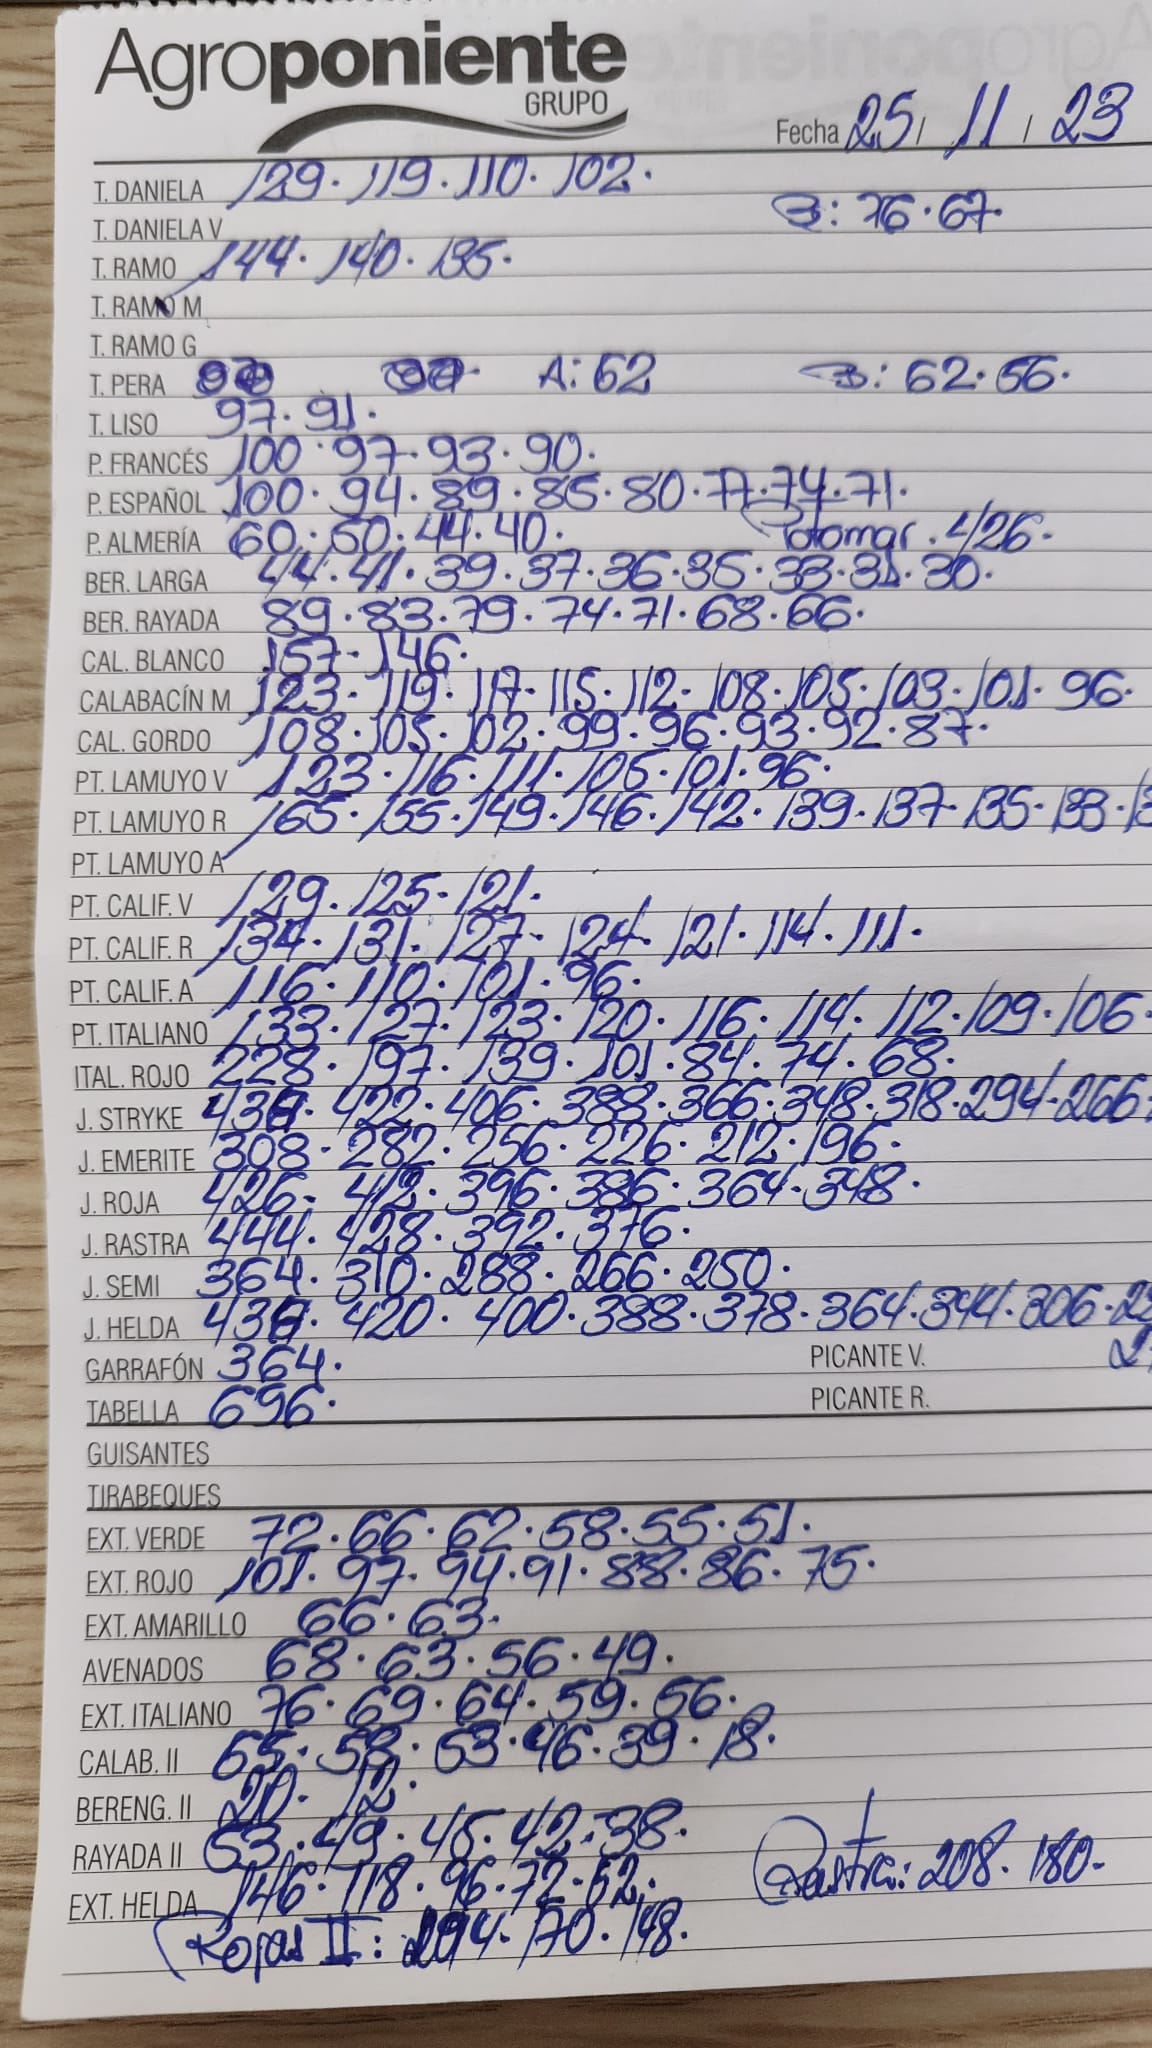 Agroponiente
GRUPO
Fecha 25 / 11 / 23
T. DANIELA 129. 119. 110. 102.
B: 76. 67.
T. DANIELA V
T. RAMO 144. 140. 135.
T. RAMO M
T. RAMO G
T. PERA A: 62 B: 62. 56.
T. LISO 97. 91.
P. FRANCÉS 100. 97. 93. 90.
P. ESPAÑOL 100. 94. 89. 85. 80. 77. 74. 71.
P. ALMERÍA 60. 50. 44. 40. 
BER. LARGA 44. 41. 39. 37. 36. 35. 33. 31. 30.
BER. RAYADA 89. 83. 79. 74. 71. 68. 66.
CAL. BLANCO 157. 146.
CALABACÍN M 123. 119. 117. 115. 112. 108. 105. 103. 101. 96.
CAL. GORDO 108. 105. 102. 99. 96. 93. 92. 87.
PT. LAMUYO V 123. 116. 111. 105. 101. 96.
PT. LAMUYO R 165. 155. 149. 146. 142. 139. 137. 135. 133.
PT. LAMUYO A
PT. CALIF. V 129. 125. 121.
PT. CALIF. R 134. 131. 127. 124. 121. 114. 111.
PT. CALIF. A 116. 110. 101. 96.
PT. ITALIANO 133. 127. 123. 120. 116. 114. 112. 109. 106.
ITAL. ROJO 228. 197. 139. 101. 84. 74. 68.
J. STRYKE 422. 406. 388. 366. 348. 318. 294. 266.
J. EMERITE 308. 282. 256. 226. 212. 196.
J. ROJA 426. 412. 396. 386. 364. 348.
J. RASTRA 444. 428. 392. 376.
J. SEMI 364. 310. 288. 266. 250.
J. HELDA 420. 400. 388. 378. 364. 344. 306.
GARRAFÓN 364. PICANTE V.
TABELLA 696. PICANTE R.
GUISANTES
TIRABEQUES
EXT. VERDE 72. 66. 62. 58. 55. 51.
EXT. ROJO 101. 97. 94. 91. 88. 86. 75.
EXT. AMARILLO 66. 63.
AVENADOS 68. 63. 56. 49.
EXT. ITALIANO 76. 69. 64. 59. 56.
CALAB. II 65. 58. 53. 46. 39. 18.
BERENG. II 20. 12.
RAYADA II 53. 49. 45. 42. 38.
EXT. HELDA 146. 118. 96. 72. 52.
Rastra: 208. 180.
Rojas II: 170. 148.